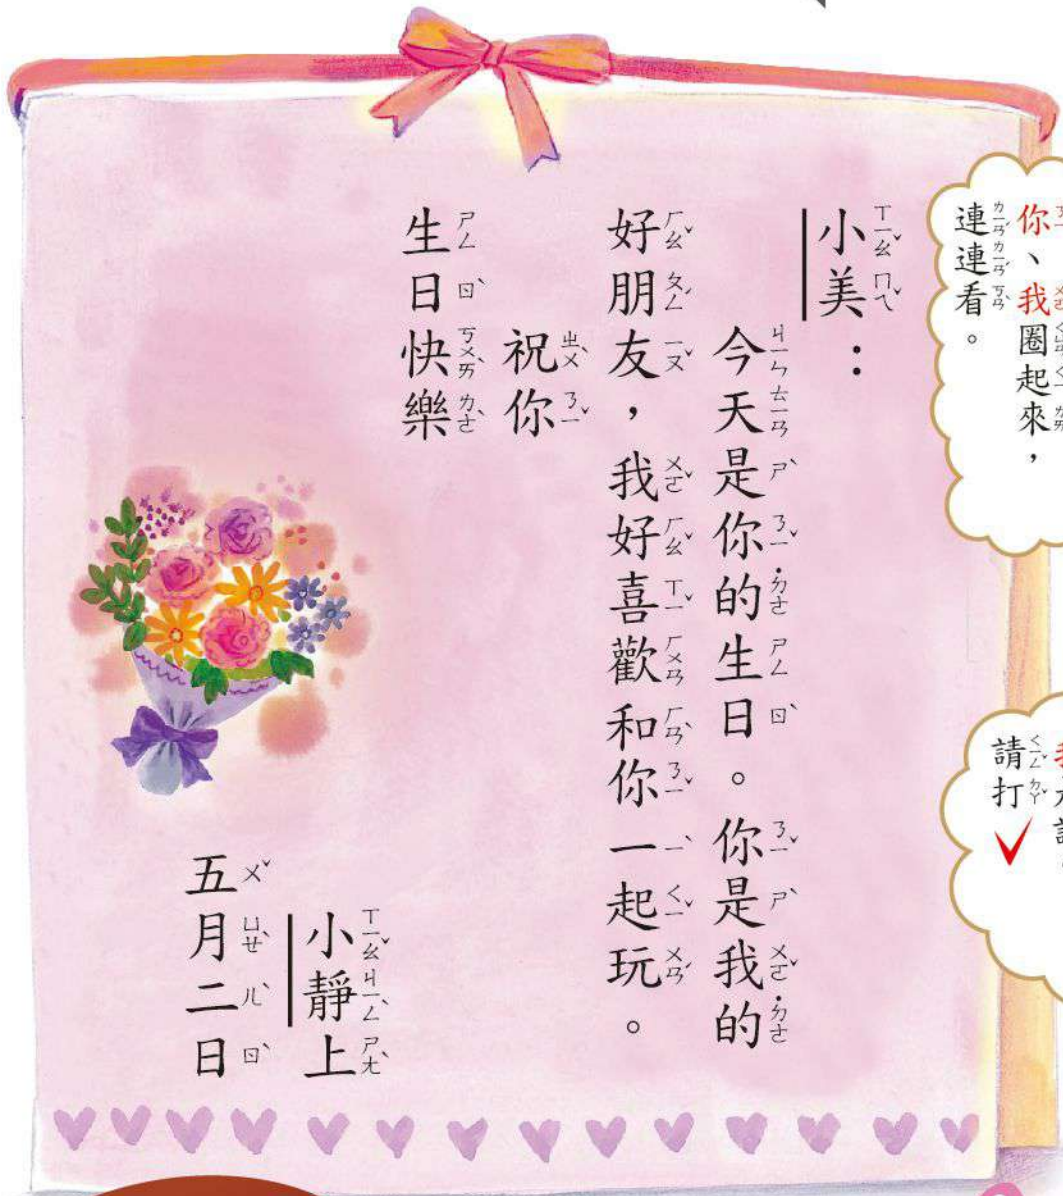 你、我圈起來，
連連看。
請打✓
小美：
今天是你的生日。你是我的
好朋友，我好喜歡和你一起玩。
祝你
生日快樂
小靜上
五月二日